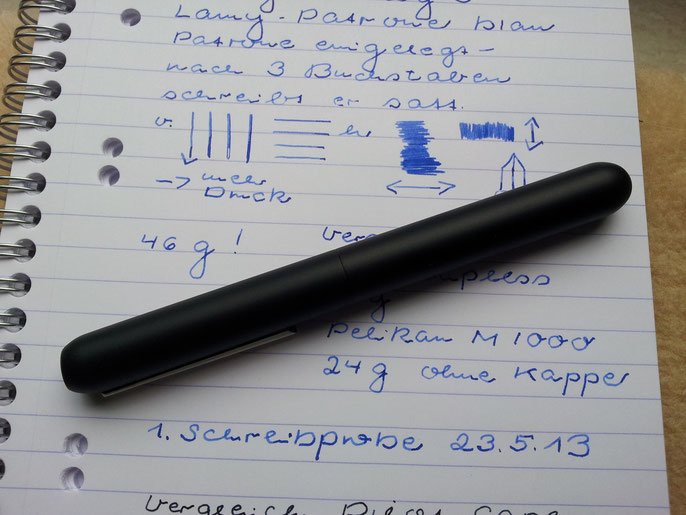 Lamy-Patrone blau
Patrone eingelegt-
nach 3 Buchstaben
schreibt er satt.
v. hr
-> mehr
Druck
46 g !
press
Pelikan M 1000
24 g ohne Kappe
1. Schreibprobe 23.5.13
Vergleich Pilot Cap